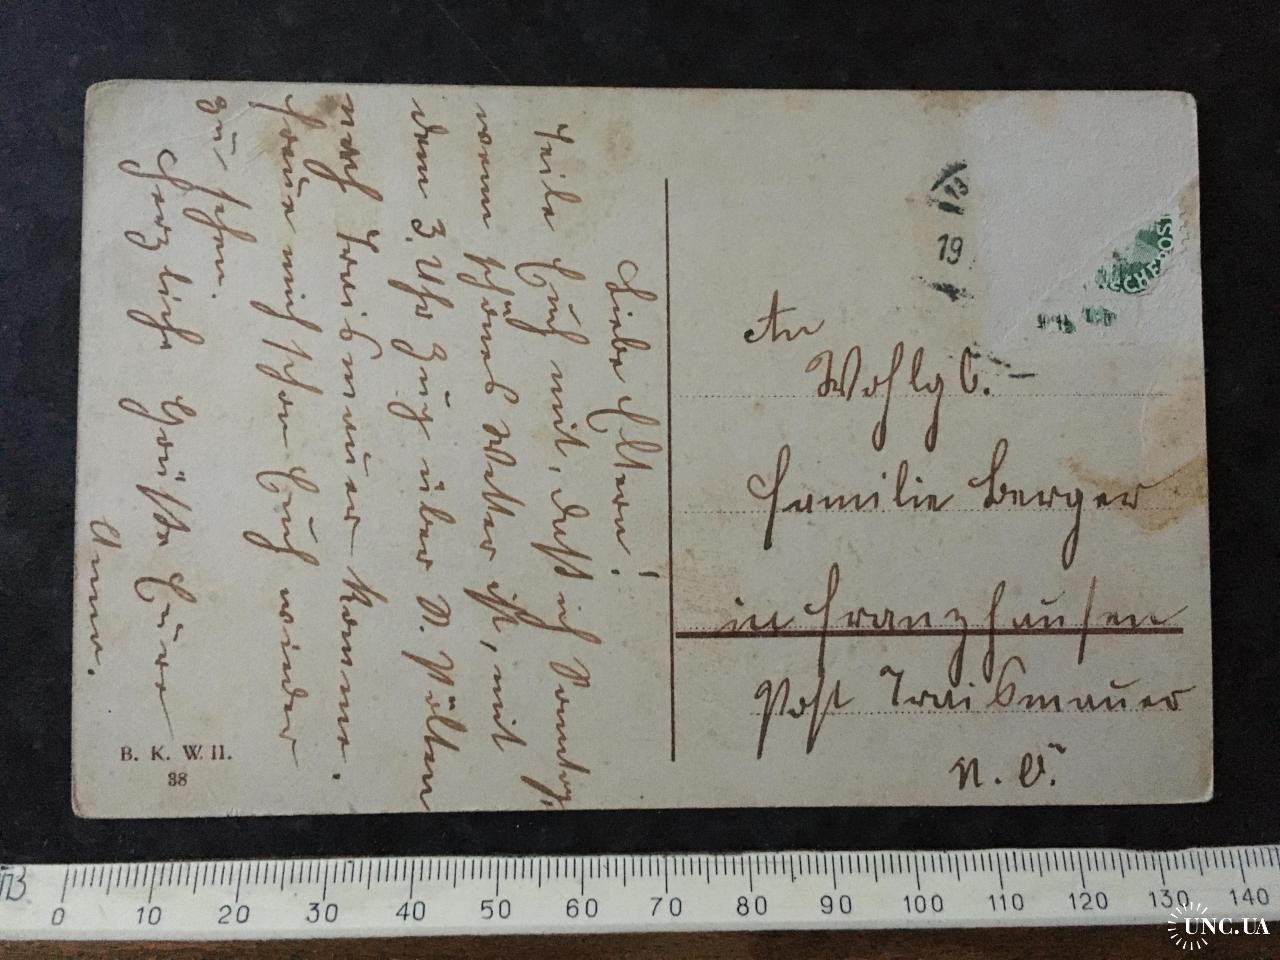 Liebe Eltern!
Teile Euch mit, daß ich Sonntag,
wenn schönes Wetter ist, mit
dem 3 Uhr Zug über S. Pölten
nach Traismauer komme.
Freue mich schon Euch wieder
zu sehen.
Herzliche Grüße Eure
Anna.
B. K. W. II.
38
19
SCHE POST
An
Wohlgb.
Familie Berger
in Franzhausen
Post Traismauer
N. Ö.
0 10 20 30 40 50 60 70 80 90 100 110 120 130 140
UNC.UA